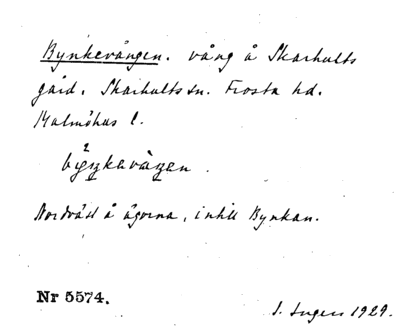 Bynkevången. vång å Skarhults
gård, Skarhults sn. Frosta hd.
Malmöhus l.
Nordväst å ägorna, intill Bynkan.
Nr 5574.
S. Ingers 1929.